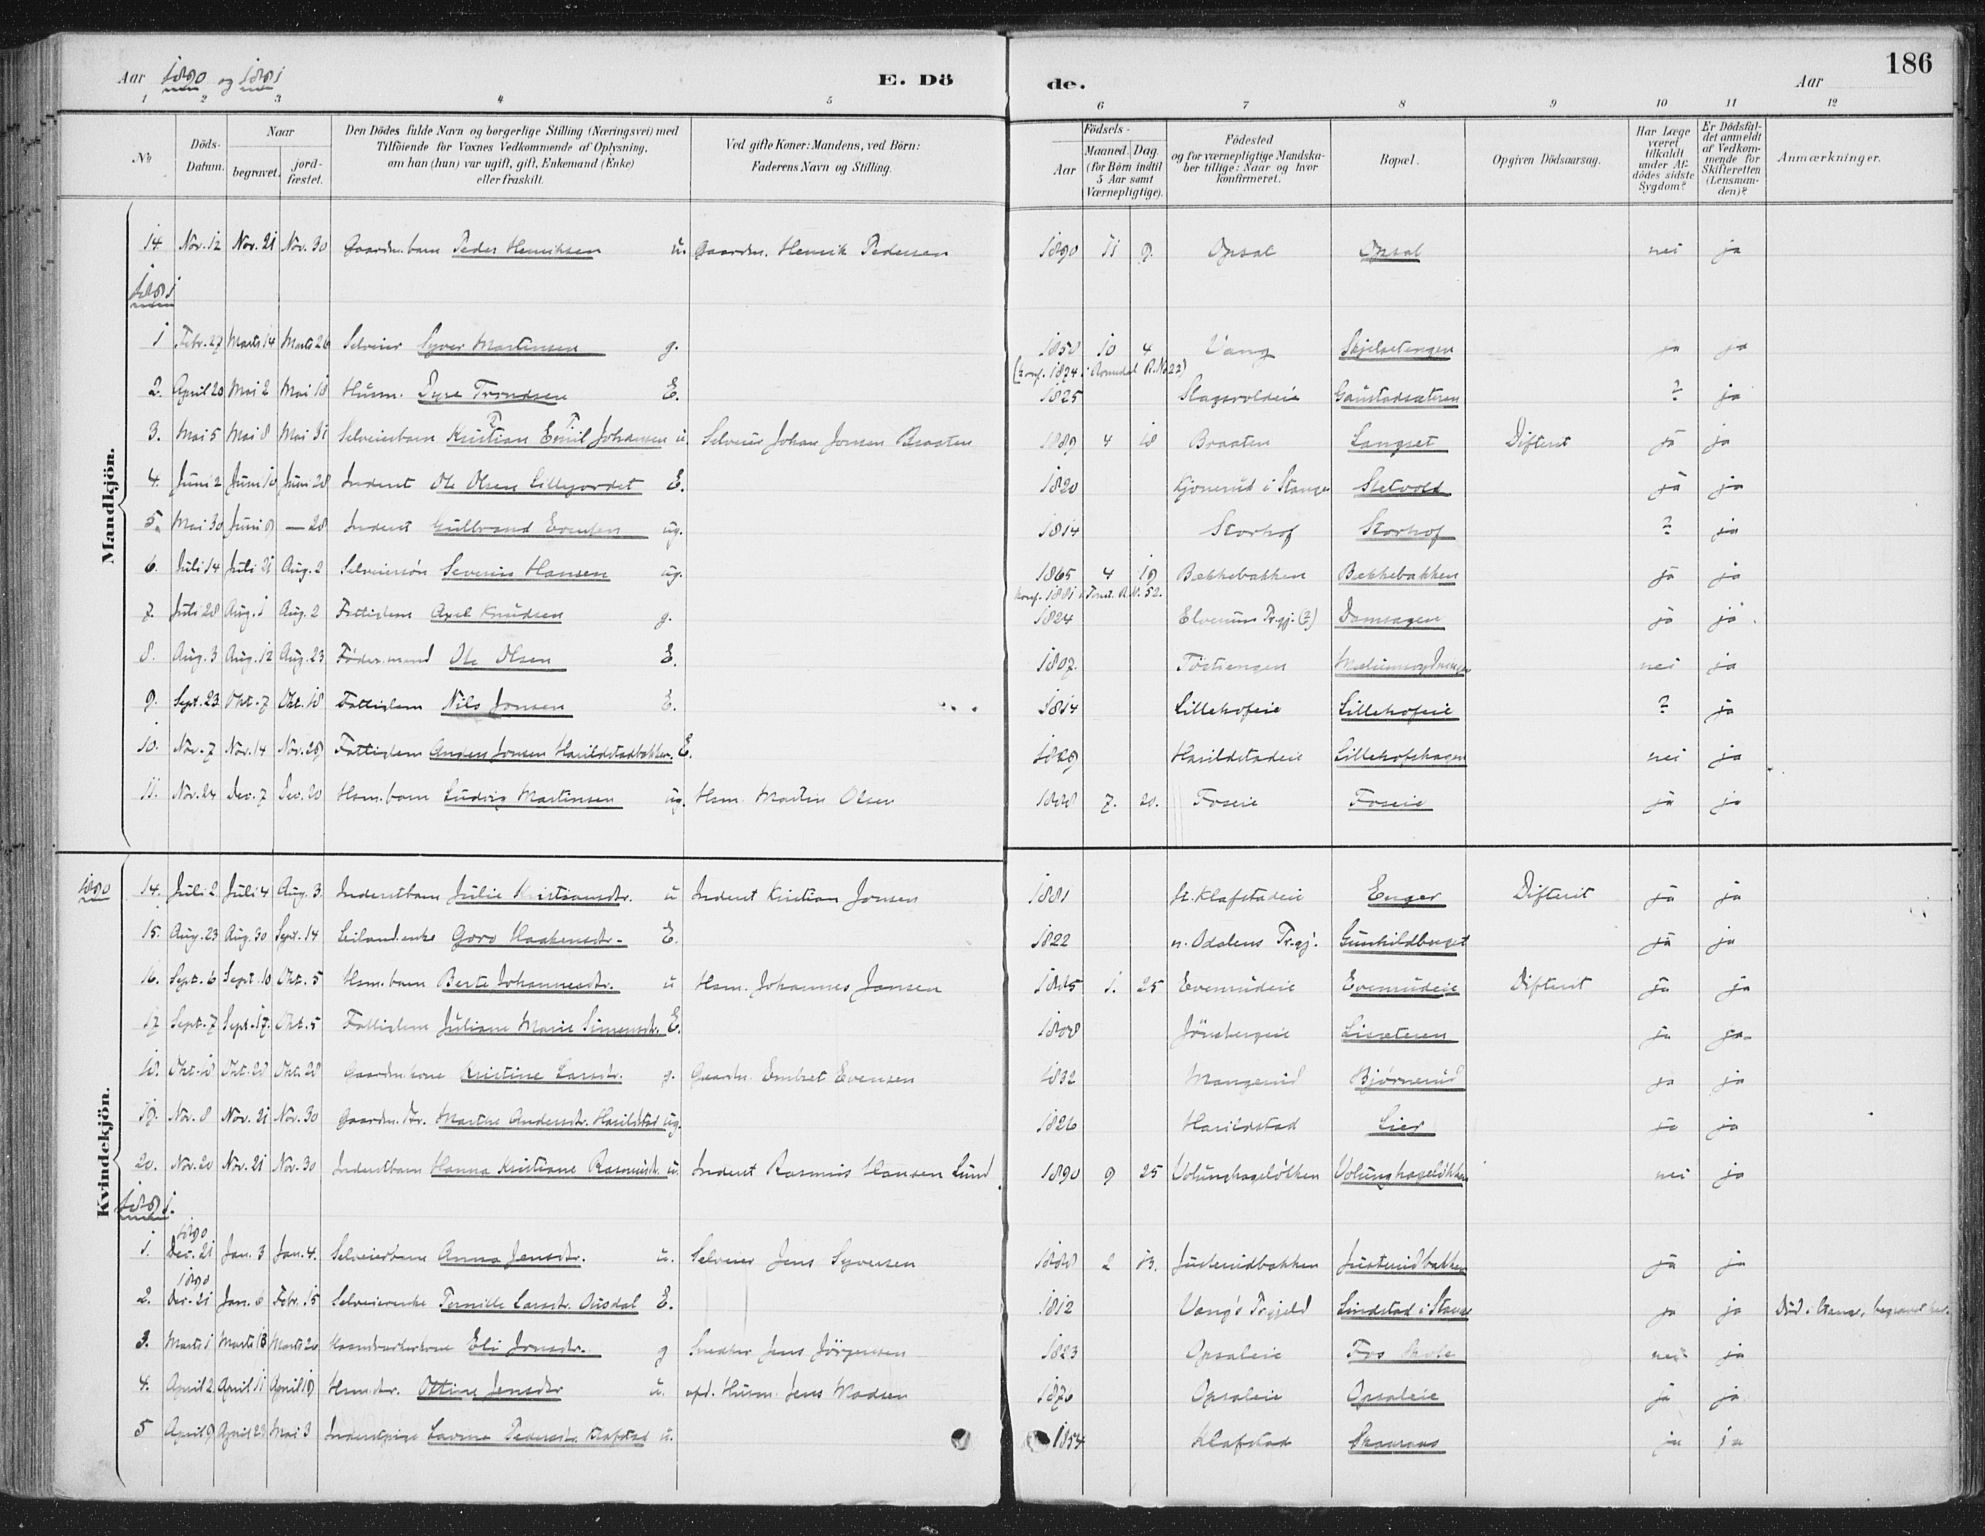 Aar 1890 og 1891
E. Dö
de.
Aar
186
1 2 3 4 5 6 7 8 9 10 11 12
No
Döds-Datum.
Naar
begravet.
jord-fæstet.
Den Dödes fulde Navn og borgerlige Stilling (Næringsvei) med
Tilföiende for Voxnes Vedkommende af Oplysning,
om han (hun) var ugift, gift, Enkemand (Enke)
eller fraskilt.
Ved gifte Koner: Mandens, ved Börn:
Faderens Navn og Stilling.
Födsels-
Aar
Maaned. Dag
(for Börn indtil
5 Aar samt
Værnepligtige).
Födested
og for værnepligtige Mandska-
ber tillige: Naar og hvor
konfirmeret.
Bopæl.
Opgiven Dödsaarsag.
Har Læge
været
tilkaldt
under Af-
dödes sidste
Sygdom?
Er Dödsfal-
det anmeldt
af Vedkom-
mende for
Skifteretten
(Lensman-
den)?
Anmærkninger.
Mandkjön.
14 Nov. 12 Nov. 21 Nov. 30 Gaardm. barn Peder Henriksen u. Gaardm. Henrik Pedersen 1890 11 9. Opsal Opsal nei ja
1891
1 Febr. 27 Marts 14 Marts 26 Selveier Syver Martinsen g. 1850 10 4 Vang Skjelsetengen ja ja
(konf. 1874 i Romedal R.No 22)
2. April 20 Mai 2 Mai 18 Husm. Trondsen E. 1825 Slagsvoldeie Gaustadsæteren ? ja
3. Mai 5 Mai 8 Mai 31 Selveierbarn Kristian Emil Johansen u. Selveier Johan Jonsen Braaten 1889 4 18 Braaten Langset Difterit ja ja
4. Juni 2 Juni 10 Juni 28 Inderst Ole Olsen Lillejordet E. 1820 Kjonerud i Stange Sletvold ja ja
5. Mai 30 Juni 9 — 28 Inderst Gulbrand Evensen ug. 1814 Storhof Storhof ? ja
6. Juli 14 Juli 21 Aug. 2 Selveiersön Severin Hansen ug. 1865 4 19 Bækkebakken Bækkebakken ja ja
konf. 1881 i Tomt. R.N. 52.
7. Juli 28 Aug. 1 Aug. 2 Fattiglem Axel Knudsen g. 1824 Elverum Pr.gj. (?) Damsagen ja ja
8. Aug. 3 Aug. 12 Aug. 23 Föder.mand Ole Olsen E. 1807. nei ja
9. Sept. 23 Okt. 7 Okt. 18 Fattiglem Nils Jonsen E. 1814 Lillehofeie Lillehofeie ? ja
10. Nov. 7 Nov. 14 Nov. 29 Fattiglem Anders Jonsen Harildstadbakken. E. 1829 Harildstadeie Lillehofshagen nei ja
11. Nov. 24 Dec. 7 Dec. 20 Hsm. barn Ludvig Martinsen ug. Hsm. Martin Olsen 1888 7. 20. Foseie Foseie ja ja
Kvindekjön.
1890 14. Juli 2 Juli 4 Aug. 3 Inderstbarn Julie Kristiansdtr. u Inderst Kristian Jonsen 1881 St. Klafstadeie Enger Difterit ja ja
15. Aug. 23 Aug. 30 Sept. 14 Leiland.enke Goro Haakensdtr. E. 1822 n. Odalens Pr.gj. Gunhildberget ja ja
16. Sept. 6 Sept. 10 Okt. 5 Hsm. barn Berte Johannesdtr. u Hsm. Johannes Jansen 1885 1. 25 Evenrudeie Evenrudeie Difterit ja ja
17 Sept. 7 Sept. 17. Okt. 5 Fattiglem Juliane Marie Simensdt. E. 1808 Jönsbergeie Lisæteren ja ja
18. Okt. 18 Okt. 28 Okt. 28 Gaardm.kone Kristine Larsdtr. g. Gaardm. Embret Evensen 1832 Mangerud Bjørnerud ja ja
19. Nov. 8 Nov. 21 Nov. 30 Gaardm. Dtr. Marthe Andersdtr. Harildstad ug. 1826 Harildstad Lier ja ja
20. Nov. 20 Nov. 21 Nov. 30 Inderstbarn Hanna Kristiane Rasmusdt. u. Inderst Rasmus Hansen Lund 1890 9 25 Volunghageløkken Volunghageløkken nei ja
1891.
1. 1890 Dec. 21 Jan. 3 Jan. 4. Selveierbarn Anna Jensdtr. u. Selveier Jens Syversen 1888 2 13. Justerudbakken Justerudbakken ja ja
2. 1890 Dec. 21 Jan. 6 Febr. 15 Selveierenke Pernille Larsdtr. Ousdal E. 1812 Vang's Pr.gjeld Lindstad i Stange ja ja Död i Stange, begravet her.
3. Marts 1 Marts 13 Marts 20 Haandværkerkone Eli Jonsdtr. g Snedker Jens Jörgensen 1823 Opsaleie Fos Skole nei ja
4. April 2 April 11 April 19 Hsm.dtr. Ottine Jensdtr u. afd. Husm. Jens Madsen 1876 Opsaleie Opsaleie ja ja
5 April 9 April 23 Mai 3 Inderstpige Lavina Pedersdtr. Klafstad u. 1854 Klafstad ja ja